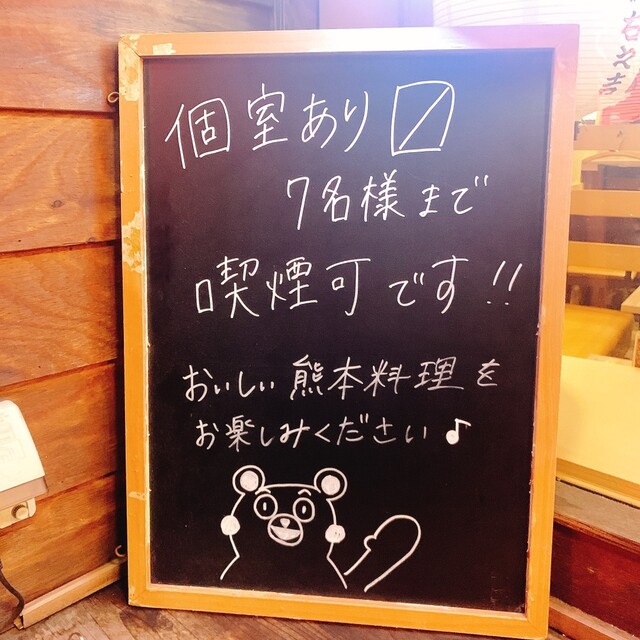 個室あり〼
7名様まで
喫煙可です!!
おいしい熊本料理を
お楽しみください♪